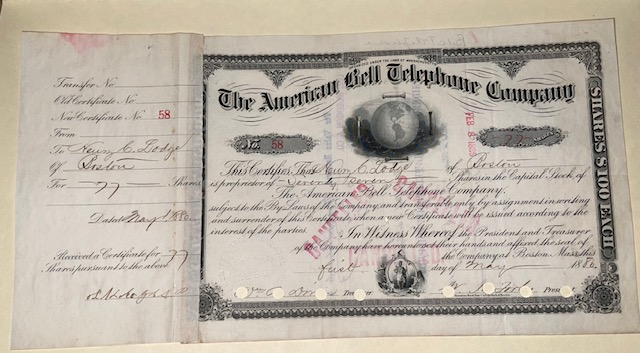 Transfer No
Old Certificate No
New Certificate No. 58
From
To Henry C. Lodge
Of Boston
For 77 Shares
Dated May 1 1880
Received a Certificate for 77
Shares pursuant to the above
The American Bell Telephone Company
No. 58
FEB 8 77
SHARES $100 EACH
This Certifies That Henry C. Lodge of Boston
is proprietor of Seventy Seven Shares in the Capital Stock of
The American Bell Telephone Company,
subject to the By Laws of the Company and transferable only by assignment in writing
and surrender of this Certificate when a new Certificate will be issued according to the
interest of the parties.
In Witness Whereof the President and Treasurer
of the Company have hereunto set their hands and affixed the seal of
the Company at Boston, Mass. this
first day of May 1880.
CANCELLED
Treasurer
President